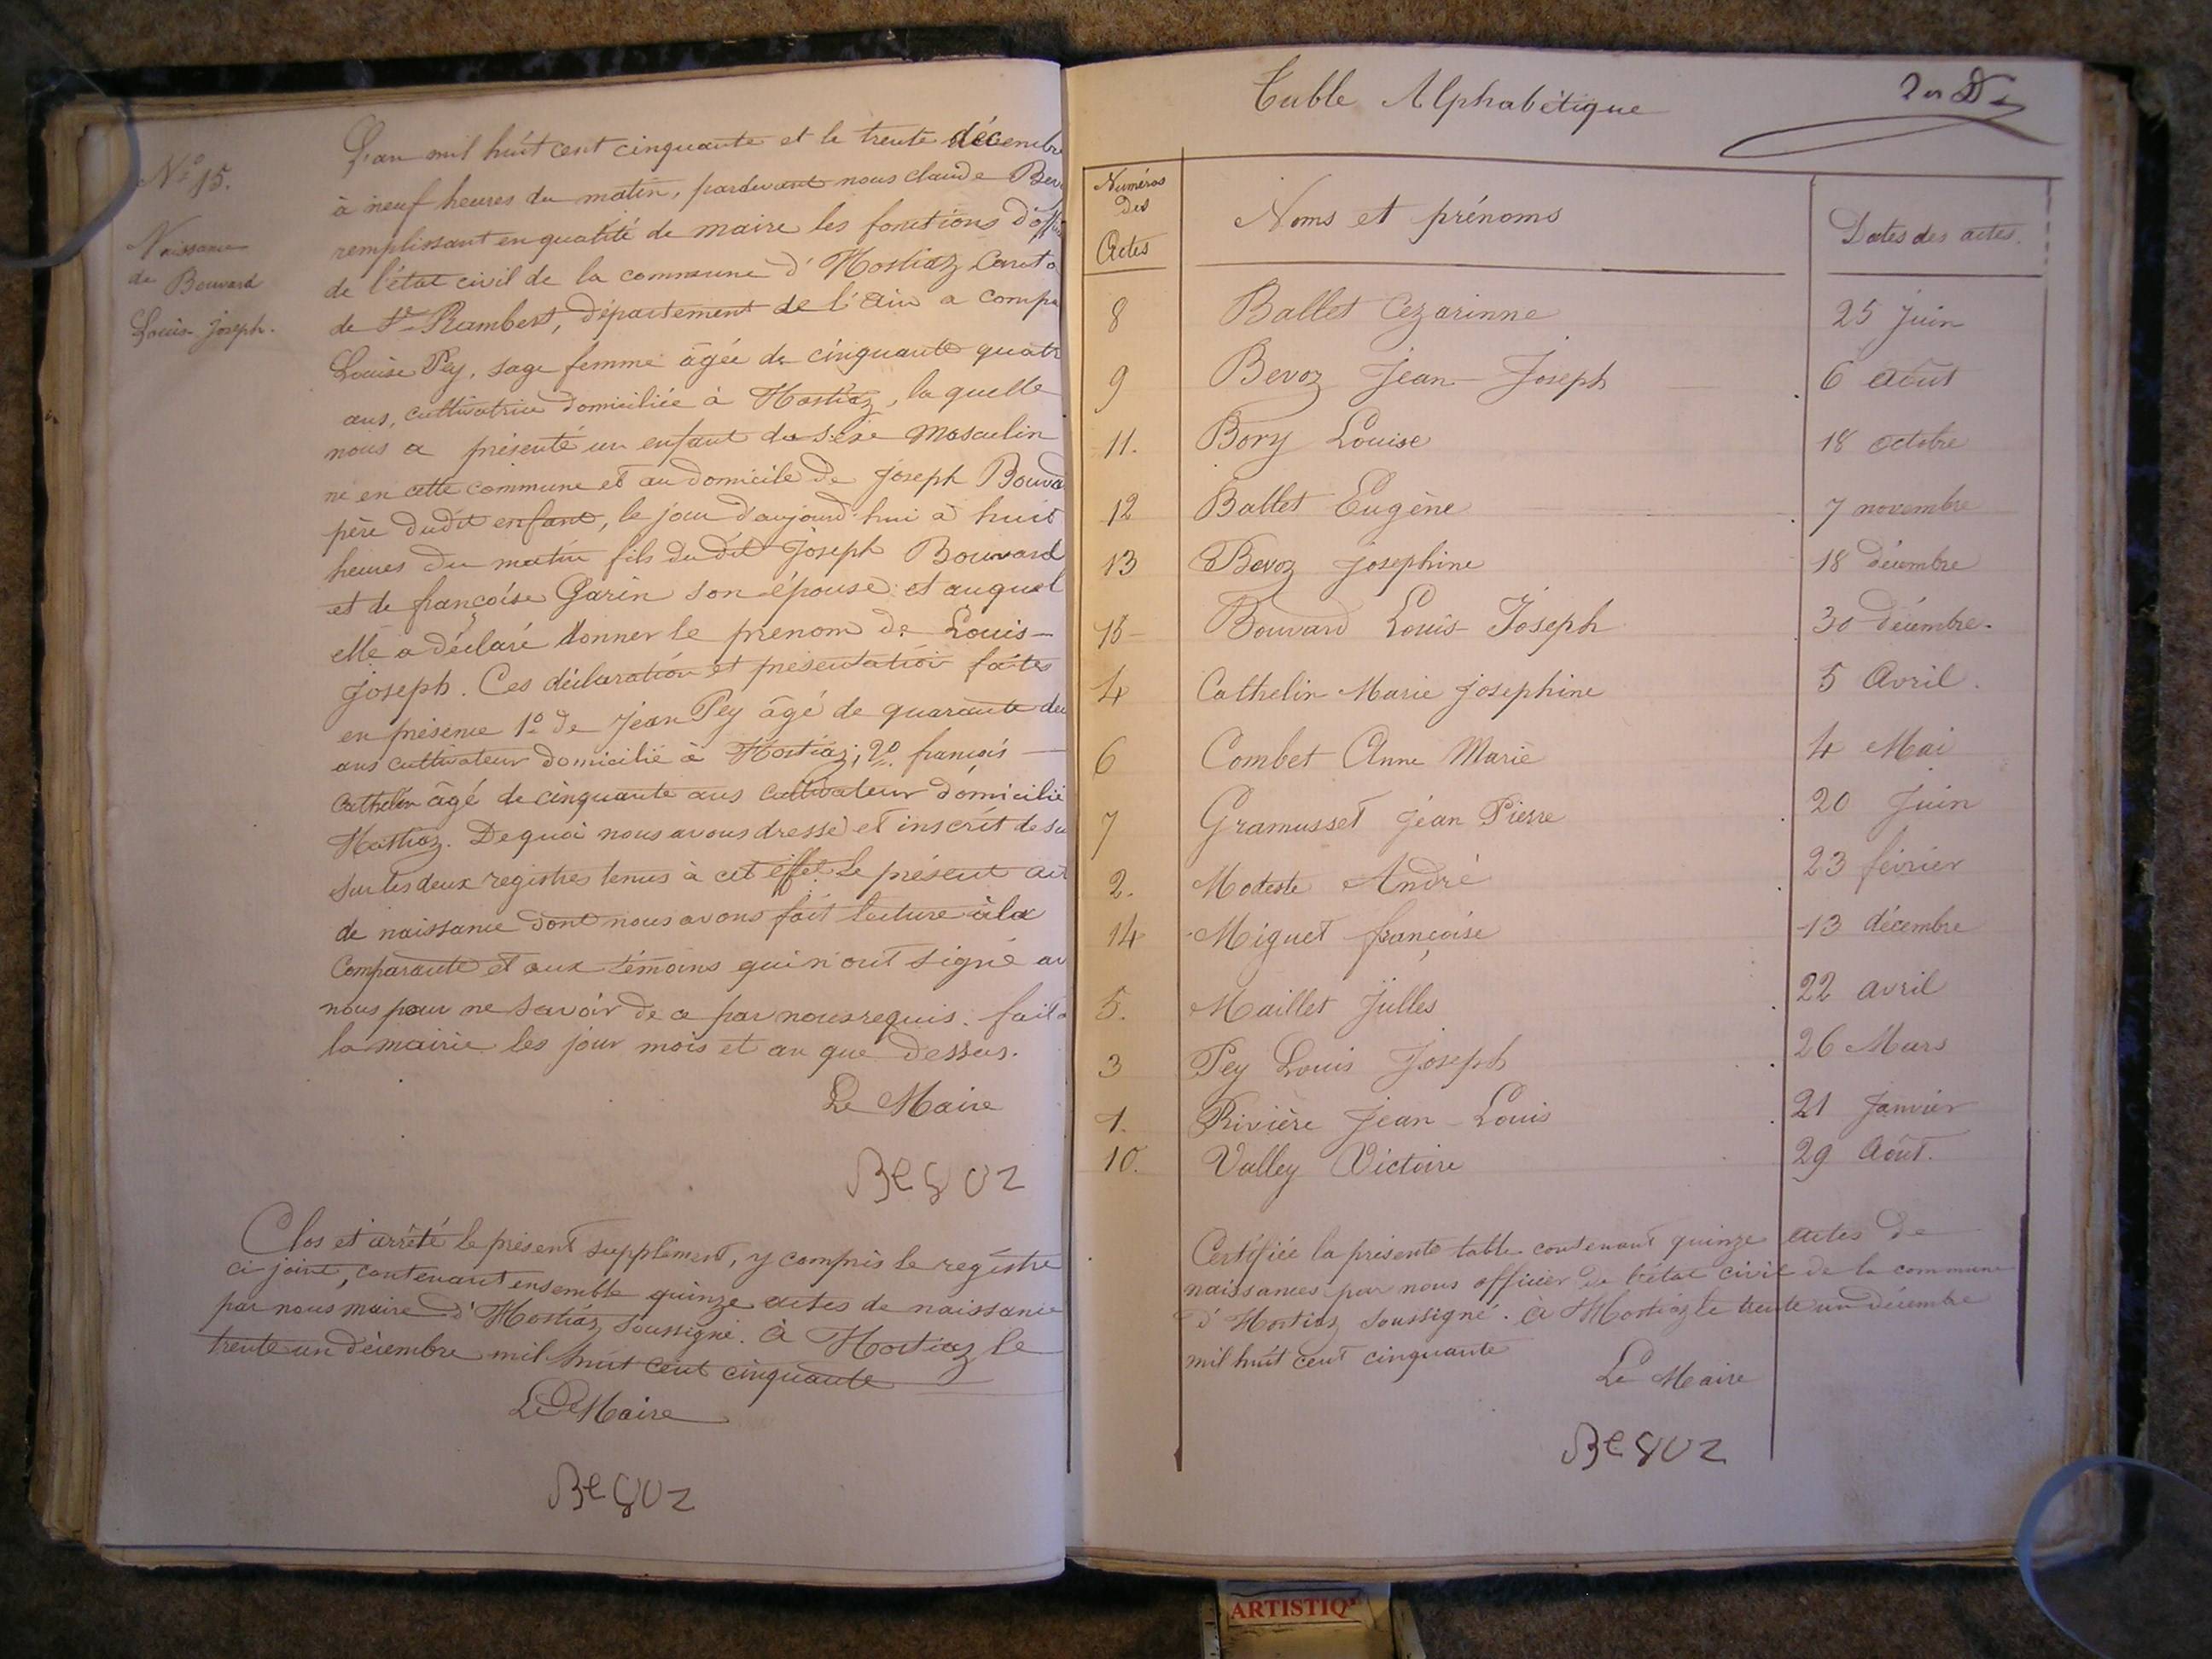 N° 15.
Naissance
de Bouvard
Louis-Joseph.
L'an mil huit cent cinquante et le trente décembre
à neuf heures du matin, pardevant nous claude Bev
remplissant en qualité de maire les fonctions d'offi
de l'état civil de la commune d'Hostiaz Canto
de St Rambert, département de l'Ain a compa
Louise Pey, sage femme âgée de cinquante quatr
ans, cultivatrice domiciliée à Hostiaz, la quelle
nous a présenté un enfant du sexe Masculin
né en cette commune et au domicile de Joseph Bouva
père dudit enfant, le jour d'aujourd'hui à huit
heures du matin fils du dit Joseph Bouvard
et de françoise Garin son épouse et auquel
elle a déclaré donner le prenom de Louis-
Joseph. Ces déclaration et présentation faites
en présence 1° de Jean Pey âgé de quarante deu
ans cultivateur domicilié à Hostiaz; 2° françois
Cathelin âgé de cinquante ans cultivateur domicilié
Hostiaz. De quoi nous avons dressé et inscrit de su
sur les deux registres tenus à cet effet le présent act
de naissance dont nous avons fait lecture à la
Comparante et aux témoins qui n'ont signé av
nous pour ne savoir de ce par nous requis. fait à
la mairie les jour mois et an que dessus.
Le Maire
Bevoz
Clos et arrêté le présent supplément, y compris le registre
ci joint, contenant ensemble quinze actes de naissance
par nous maire d'Hostiaz soussigné. à Hostiaz le
trente un décembre mil huit cent cinquante
Le Maire
Bevoz
Table Alphabétique
Numéros
Des
Actes
Noms et prénoms
Dates des actes.
8 Ballet Cezarinne 25 juin
9 Bevoz Jean-Joseph 6 août
11. Bory Louise 18 octobre
12 Ballet Eugène 7 novembre
13 Bevoz Josephine 18 décembre
15 Bouvard Louis-Joseph 30 décembre.
4 Cathelin Marie josephine 5 Avril.
6 Combet Anne Marie 4 Mai
7 Gramusset Jean Pierre 20 Juin
2. Modeste André 23 février
14 Miguet françoise 13 décembre
5. Maillet Julles 22 avril
3 Pey Louis Joseph 26 Mars
1. Rivière Jean-Louis 21 Janvier
10. Valley Victoire 29 Août.
Certifiée la présente table contenant quinze actes de
naissances par nous officier de l'état civil de la commune
d'Hostiaz soussigné. à Hostiaz le trente un décembre
mil huit cent cinquante
Le Maire
Bevoz
ARTISTIQ